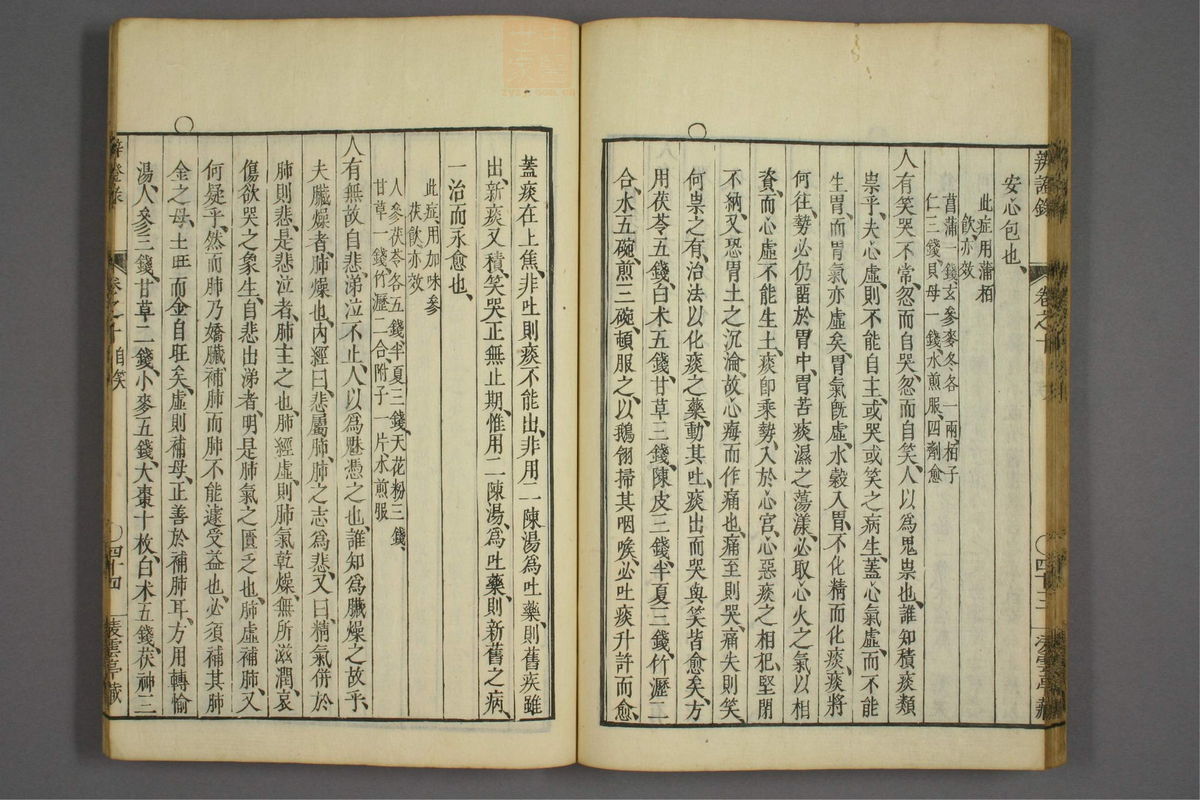 辨證錄 卷之十 〇四十三 凌雲亭藏
安心包也、
此症用蒲柏
飲亦效
菖蒲一錢、玄參麥冬各一兩、柏子
仁三錢、貝母一錢、水煎服、四劑愈
人有笑哭不常、忽而自哭、忽而自笑、人以爲鬼祟也、誰知積痰類
祟乎、夫心虛、則不能自主、或哭或笑之病生、蓋心氣虛、而不能
生胃、而胃氣亦虛矣、胃氣旣虛、水穀入胃、不化精而化痰、痰將
何往、勢必仍留於胃中、胃苦痰濕之蕩漾、必取心火之氣以相
資、而心虛不能生土、痰卽乘勢、入於心宮、心惡痰之相犯、堅閉
不納、又恐胃土之沉淪、故心痗而作痛也、痛至則哭、痛失則笑、
何祟之有、治法以化痰之藥、動其吐、痰出而哭與笑皆愈矣、方
用茯苓五錢、白术五錢、甘草三錢、陳皮三錢、半夏三錢、竹瀝二
合、水五碗、煎三碗、頓服之、以鵝翎掃其咽喉、必吐痰升許而愈、
蓋痰在上焦、非吐則痰不能出、非用二陳湯爲吐藥、則舊疾雖
出、新痰又積、笑哭正無止期、惟用二陳湯、爲吐藥、則新舊之病、
一治而永愈也、
此症用加味參
茯飲亦效
人參茯苓各五錢、半夏三錢、天花粉三錢、
甘草一錢、竹瀝二合、附子一片、水煎服
人有無故自悲、涕泣不止、人以爲魅憑之也、誰知爲臟燥之故乎、
夫臟燥者、肺燥也、內經曰、悲屬肺、肺之志爲悲、又曰、精氣併於
肺則悲、是悲泣者、肺主之也、肺經虛、則肺氣乾燥、無所滋潤、哀
傷欲哭之象生、自悲出涕者、明是肺氣之匱乏也、肺虛補肺、又
何疑乎、然而肺乃嬌臟、補肺而肺不能遽受益也、必須補其肺
金之母、土旺而金自旺矣、虛則補母、正善於補肺耳、方用轉愉
湯、人參三錢、甘草二錢、小麥五錢、大棗十枚、白术五錢、茯神三
辨證錄 卷之十 自笑 〇四十四 凌雲亭藏